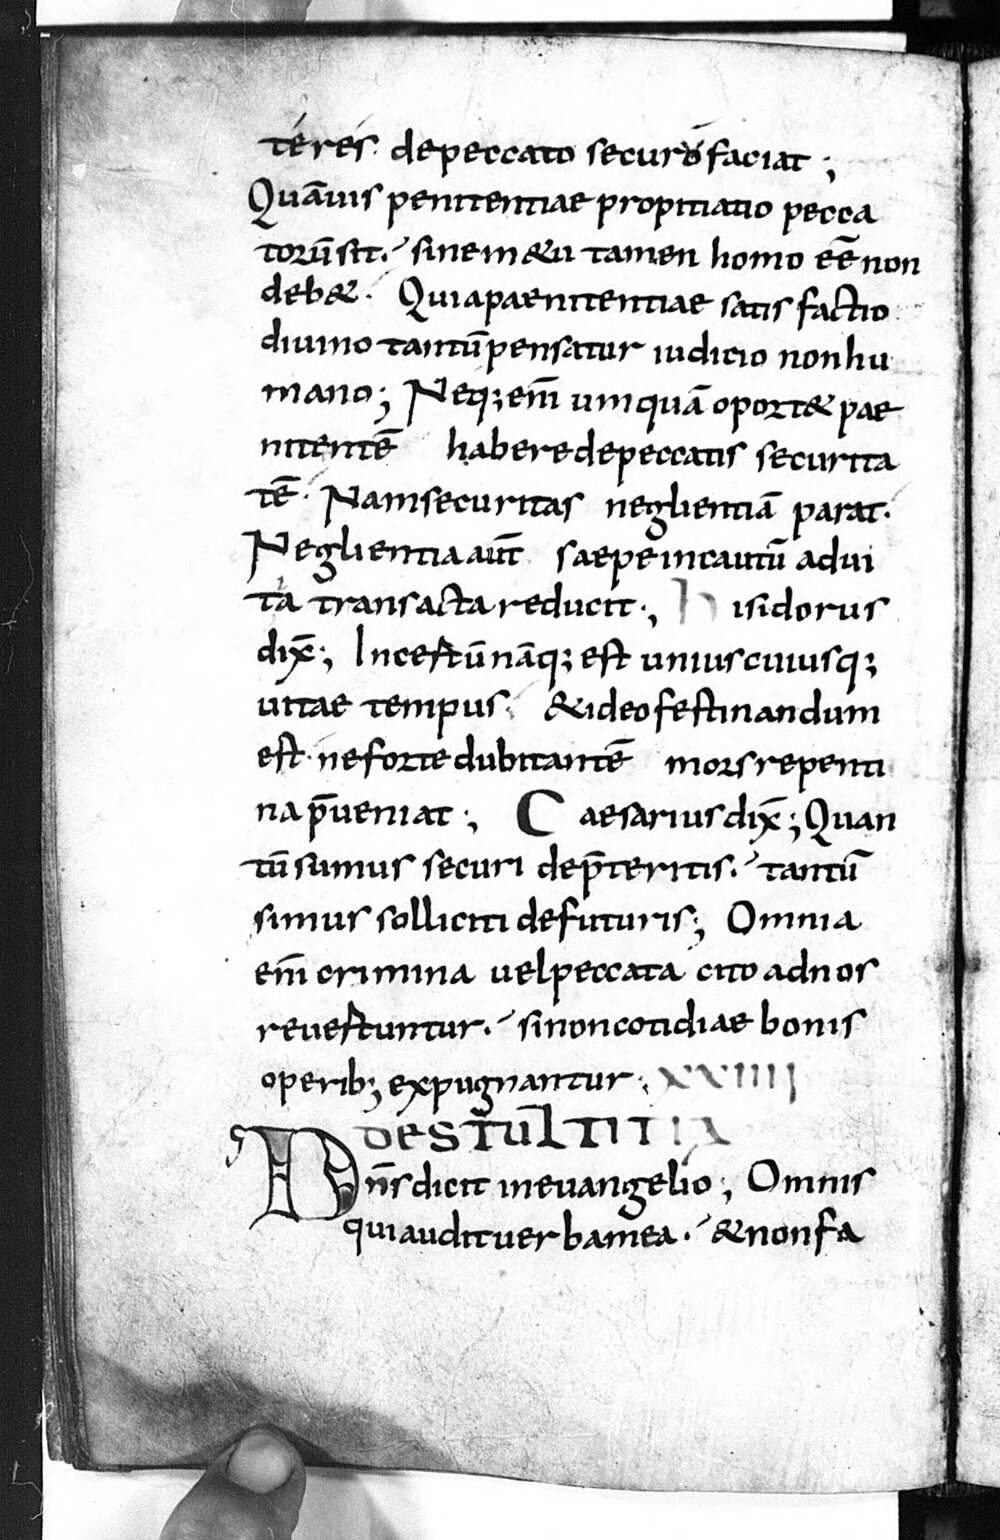 teres. depeccato securo faciat ;
Quāuis penitentiae propitiatio pecca
torū sit. sine m&u tamen homo eē non
deb&. Quia paenitentiae satisfactio
diuino tantū pensatur iudicio non hu
mano ; Neq; enī umquā oport& pae
nitentē habere depeccatis securita
tē. Nam securitas neglientiā parat.
Neglientia aūt saepe incautū ad ui
ta transacta reducit ; h isidorus
dix̄ ; Incestū nāq; est unius cuiusq;
uitae tempus. & ideo festinandum
est. ne forte dubitantē mors repenti
na p̄ueniat ; Caesarius dix̄ ; Quan
tū sumus securi de p̄teritis. tantū
simus solliciti defuturis ; Omnia
enī crimina uel peccata cito ad nos
reuestuntur. si non cotidiae bonis
operib; expugnantur ; XXIIII
DE STULTITIA
Dn̄s dicit in euangelio ; Omnis
qui audit uerba mea. & non fa